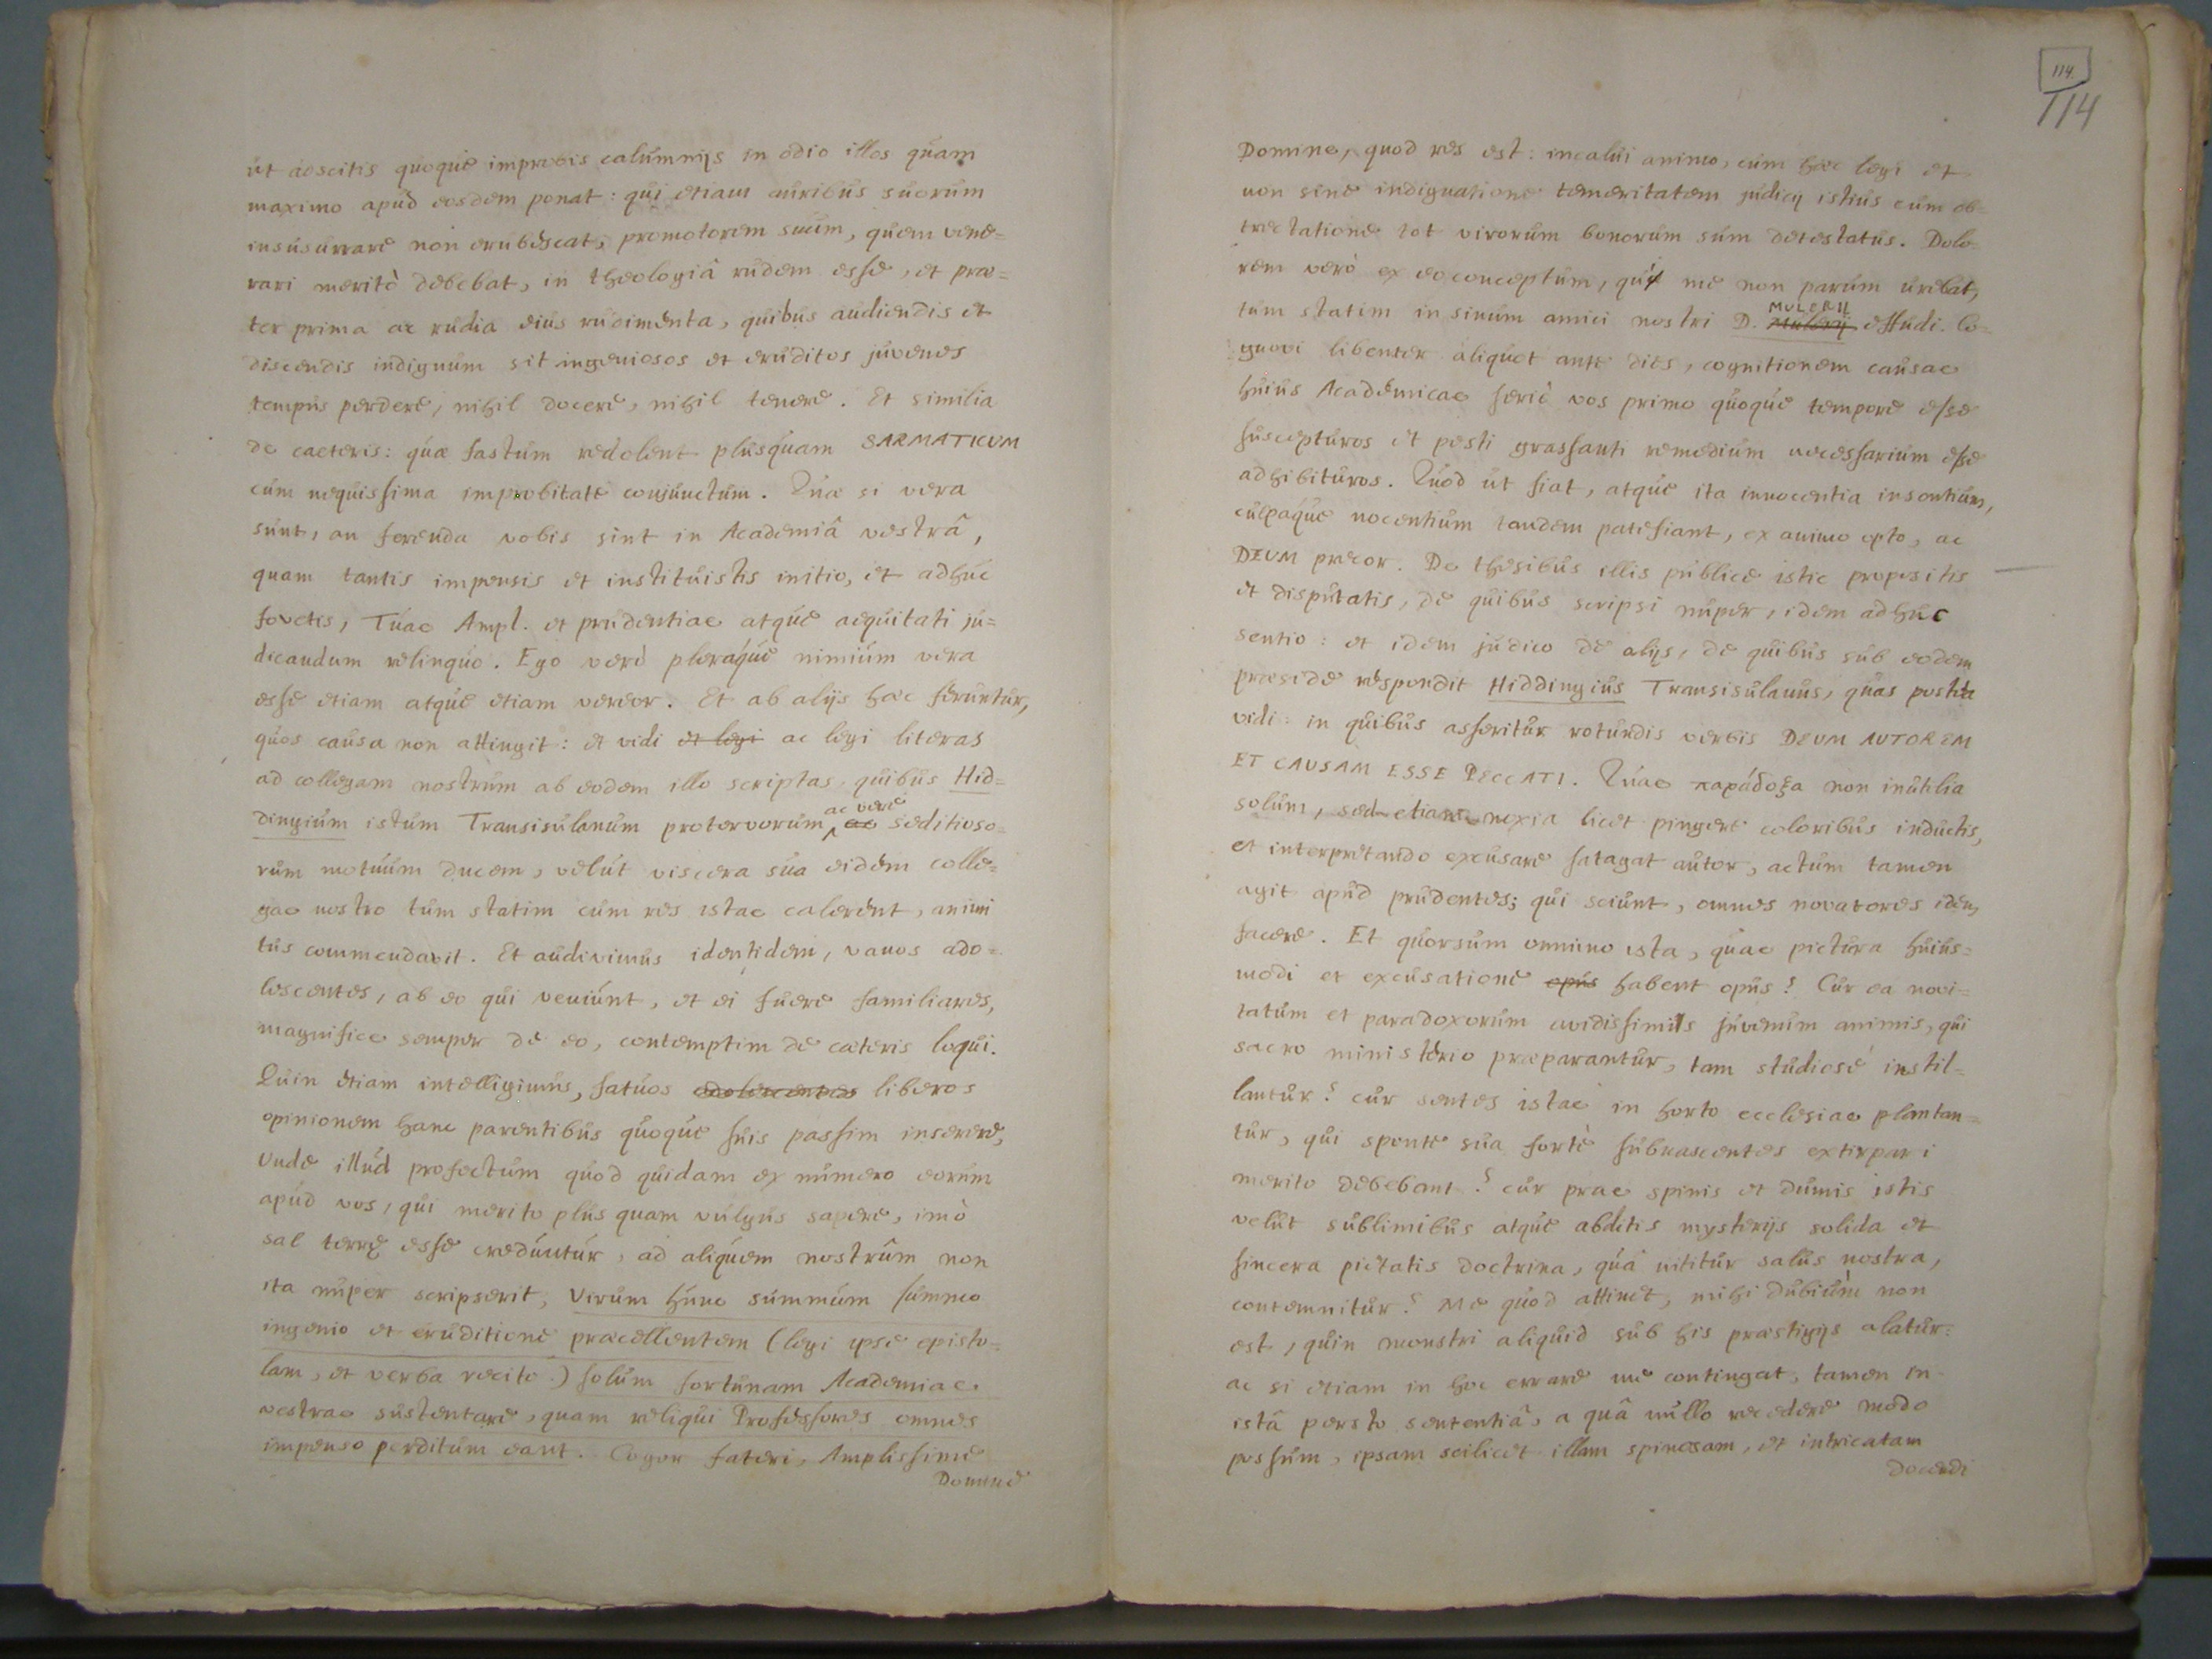 ut adscitis quoque improbis calumnijs in odio illos quam
maximo apud eosdem ponat: qui etiam auribus suorum
insusurrare non erubescat, promotorem suum, quem vene=
rari meritò debebat, in theologiâ rudem esse, et præ=
ter prima ac rudia eius rudimenta, quibus audiendis et
discendis indignum sit ingeniosos et eruditos juvenes
tempus perdere, nihil docere, nihil tenere. Et similia
de caeteris: quæ fastum redolent plusquam SARMATICVM
cum nequissima improbitate conjunctum. Quæ si vera
sunt, an ferenda vobis sint in Academiâ vestrâ,
quam tantis impensis et instituistis initio, et adhuc
fovetis, Tuae Ampl. et prudentiae atque aequitati ju=
dicandum relinquo. Ego verò pleraque nimium vera
esse etiam atque etiam vereor. Et ab alijs hæc feruntur,
quos causa non attingit: et vidi et legi ac legi literas
ad collegam nostrum ab eodem illo scriptas, quibus Hid=
dingium istum Transisulanum protervorum ac vere ac seditioso=
rum motuum ducem, velut viscera sua eidem colle=
gae nostro tum statim cum res istae calerent, animi
tus commendavit. Et audivimus identidem, vanos ado=
lescentes, ab eo qui veniunt, et ei fuere familiares,
magnifice semper de eo, contemptim de cæteris loqui.
Quin etiam intelligimus, fatuos adolescentes liberos
opinionem hanc parentibus quoque suis passim inserere,
Unde illud profectum quod quidam ex numero eorum
apud vos, qui merito plus quam vulgus sapere, imò
sal terrę esse creduntur, ad aliquem nostrûm non
ita nuper scripserit, Virum hunc summum summo
ingenio et eruditione præcellentem (legi ipse episto=
lam, et verba recito) solum fortunam Academiae
vestrae sustentare, quam reliqui Professores omnes
impenso perditum eant. Cogor fateri, Amplissime
Domine
114.
114
Domine, quod res est: incalui animo, cum hæc legi et
non sine indignatione temeritatem judicij istius cum ob=
trectatione tot virorum bonorum sum detestatus. Dolo=
rem verò ex eo conceptum, qui me non parum urebat,
MULERII
tum statim in sinum amici nostri D. Mulerij effudi. Co=
gnovi libenter aliquot ante dies, cognitionem causae
huius Academicae seriò vos primo quoque tempore esse
suscepturos et pesti grassanti remedium necessarium esse
adhibituros. Quod ut fiat, atque ita innocentia insontium,
culpaque nocentium tandem patefiant, ex animo opto, ac
DEUM precor. De thesibus illis publice istic propositis
et disputatis, de quibus scripsi nuper, idem adhuc
sentio: et idem judico de alijs, de quibus sub eodem
præside respondit Hiddingius Transisulanus, quas postea
vidi: in quibus asseritur rotundis verbis DEUM AUTOREM
ET CAUSAM ESSE PECCATI. Quae παράδοξα non inutilia
solum, sed etiam noxia licet pingere coloribus inductis,
et interpretando excusare satagat autor, actum tamen
agit apud prudentes; qui sciunt, omnes novatores idem
facere. Et quorsum omnino ista, quae pictura huius=
modi et excusatione opus habent opus? Cur ea novi=
tatum et paradoxorum avidissimis juvenum animis, qui
sacro ministerio præparantur, tam studiosè instil=
lantur? cur sentes istae in horto ecclesiae plantan=
tur, qui sponte sua fortè subnascentes extirpari
merito debebant? cur prae spinis et dumis istis
velut sublimibus atque abditis mysterijs solida et
sincera pietatis doctrina, quâ nititur salus nostra,
contemnitur? Me quod attinet, mihi dubium non
est, quin monstri aliquid sub his præstigijs alatur:
ac si etiam in hoc errare me contingat, tamen in
istâ persto sententiâ, a quâ nullo recedere modo
possum, ipsam scilicet illam spinosam, et intricatam
docendi